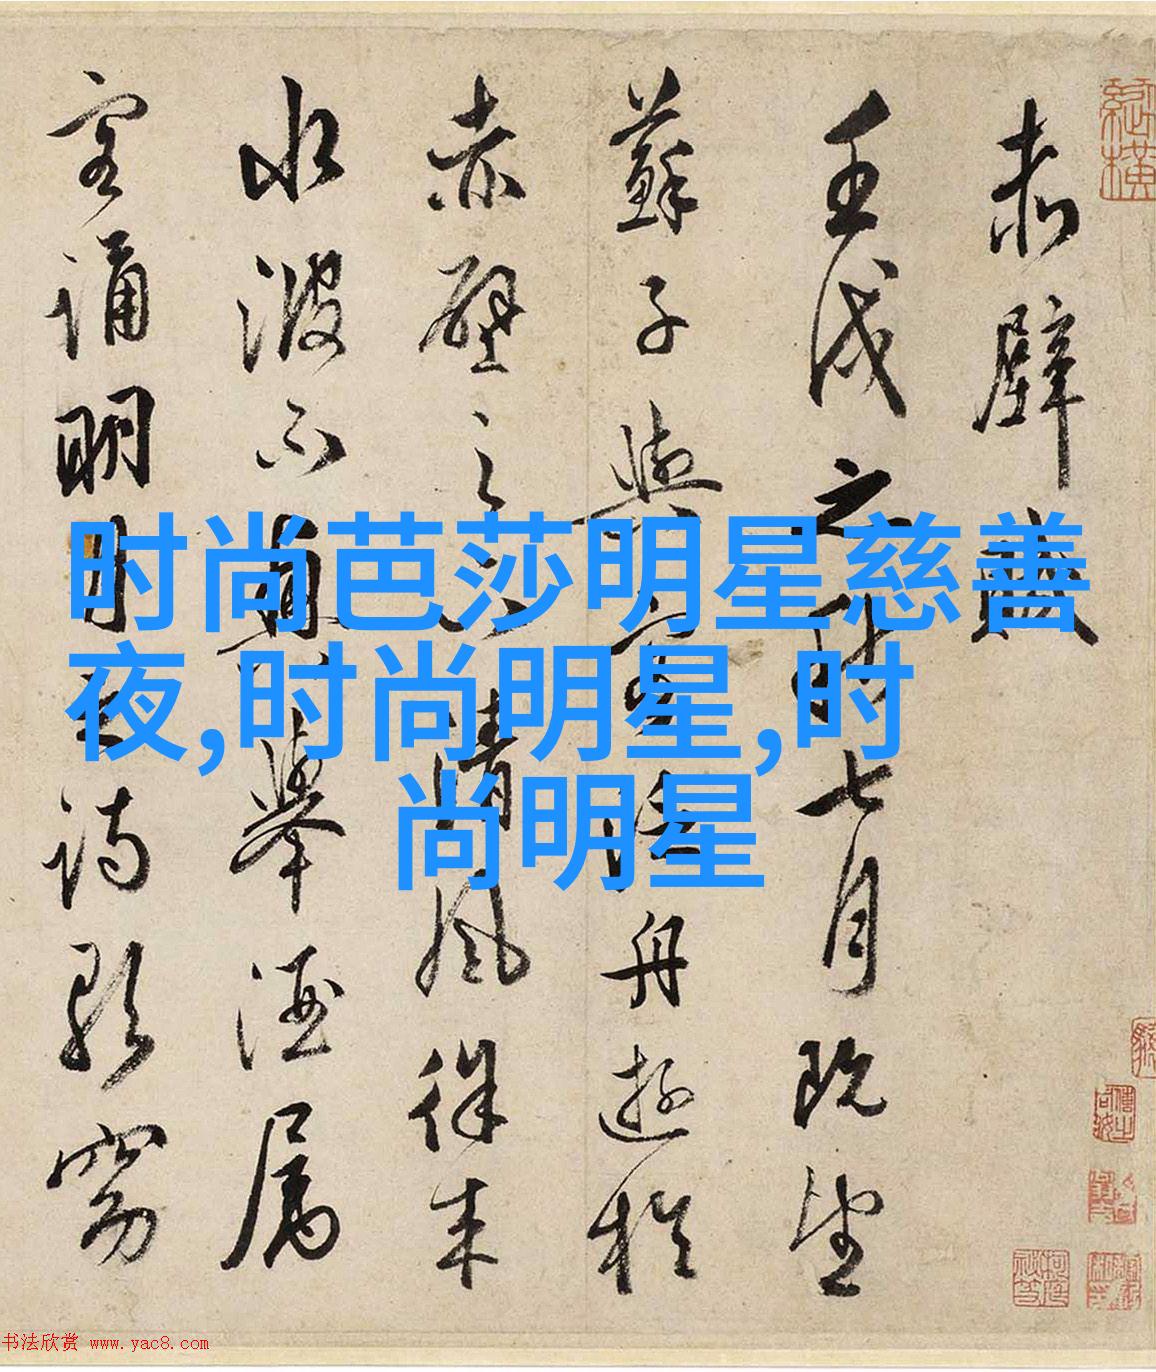 赤壁賦
壬戌之秋七月既望
蘇子與客泛舟遊於
赤壁之下清風徐來
水波不興舉酒屬
客誦明月之詩歌窈
时尚芭莎明星慈善
夜,时尚明星,时
尚明星
书法欣赏 www.yac8.com